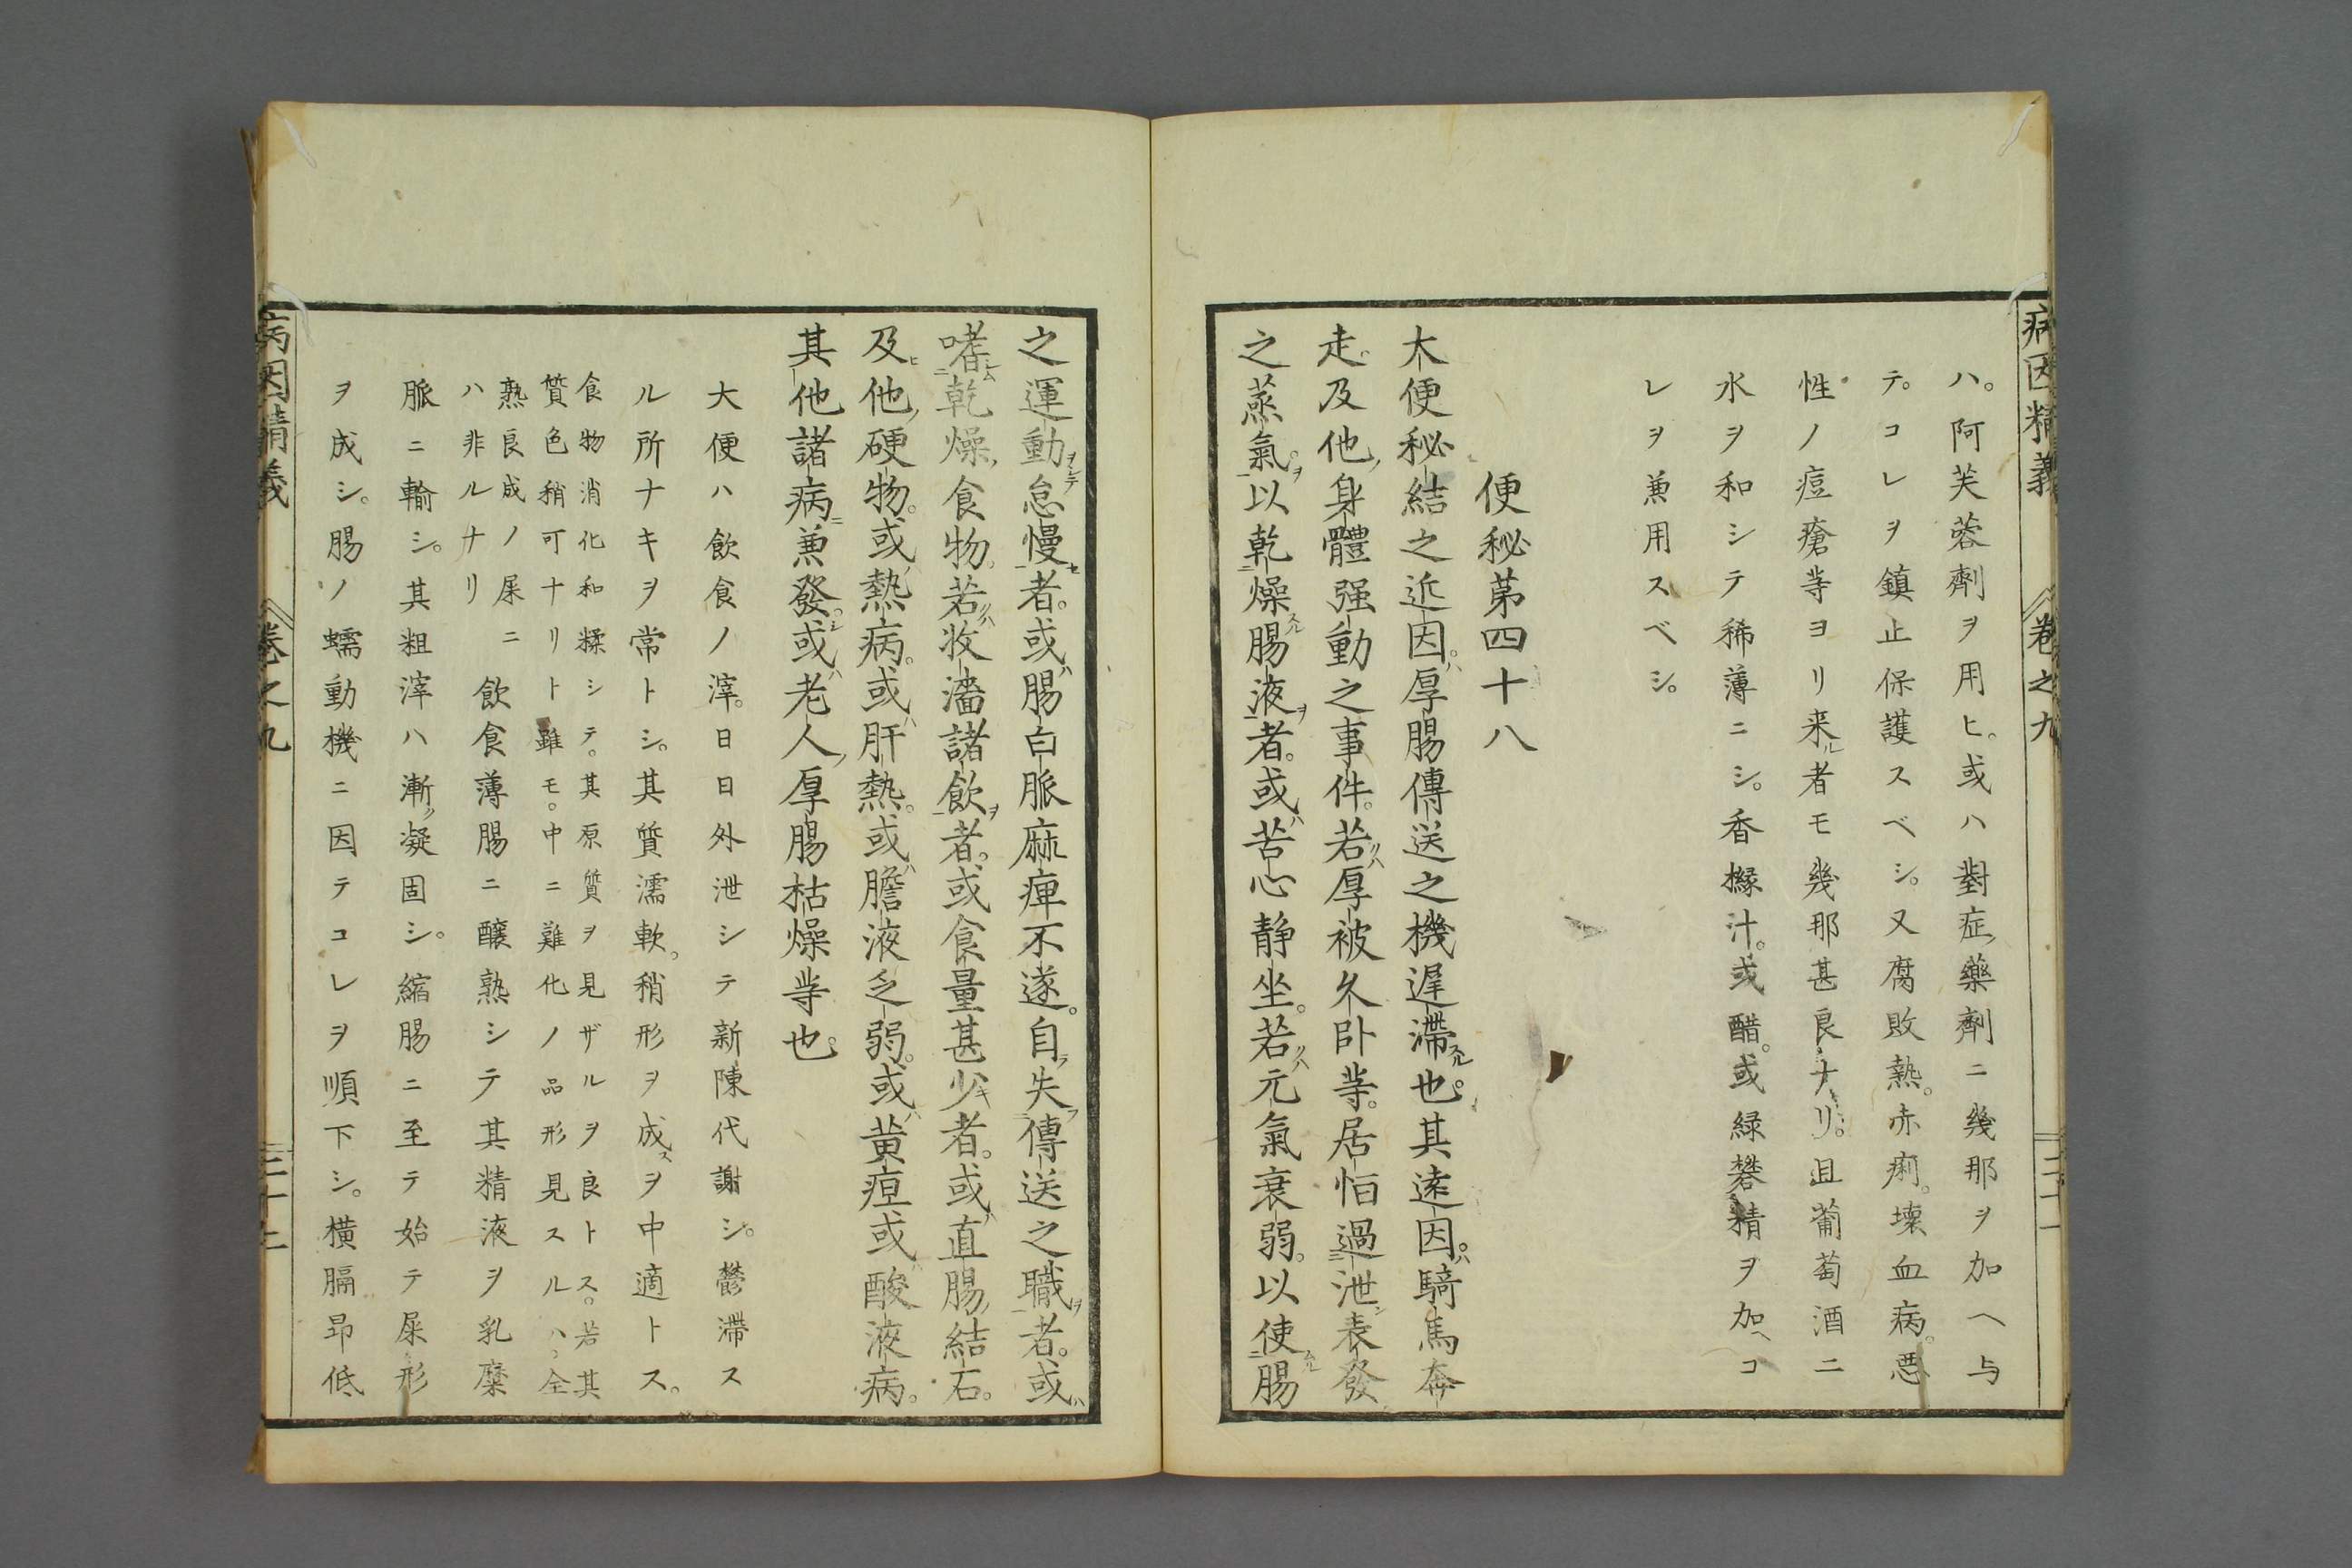 病因精義 卷之九 二十一
ハ。阿芙蓉劑ヲ用ヒ。或ハ對症ノ藥劑ニ幾那ヲ加ヘ与
テ。コレヲ鎮止保護スベシ。又腐敗熱。赤痢。壊血病。悪
性ノ痘瘡等ヨリ来ル者モ幾那甚良ナリ。且葡萄酒ニ
水ヲ和シテ稀薄ニシ。香櫞汁。或醋。或緑礬精ヲ加ヘコ
レヲ兼用スベシ。
便秘第四十八
大便秘結之近因。ハ厚腸傳送之機遅滞スル也。其遠因。ハ騎馬奔
走。及他ノ身體强動之事件。若クハ厚被久卧等。居恒過泄表發
之蒸氣。ヲ以乾燥スル腸液ヲ者。或ハ苦心静坐。若クハ元氣衰弱。以使ムル腸
之運動ヲシテ怠慢セ者。或ハ腸白脈麻痺不遂。自ラ失フ傳送之職ヲ者。或ハ
嗜ム乾燥ノ食物。若クハ收濇諸飲ヲ者。或食量甚少キ者。或ハ直腸ノ結石。
及ヒ他ノ硬物。或ノ熱病。或ハ肝熱。或ハ膽液乏弱。或ハ黄疸或ハ酸液病。
其他諸病ニ兼發シ。或ハ老人ノ厚腸枯燥等也。
大便ハ飲食ノ滓。日日外泄シテ新陳代謝シ。鬱滯ス
ル所ナキヲ常トシ。其質濡軟。稍形ヲ成スヲ中適トス。
食物消化和糅シテ。其原質ヲ見ザルヲ良トス。若其
質色稍可ナリト雖モ。中ニ難化ノ品形見スルハ。全
熟良成ノ屎ニ
ハ非ルナリ
飲食薄腸ニ醸熟シテ其精液ヲ乳糜
脈ニ輸シ。其粗滓ハ漸ク凝固シ。縮腸ニ至テ始テ屎形
ヲ成シ。腸ノ蠕動機ニ因テコレヲ順下シ。横膈昂低
病因精義 卷之九 二十二